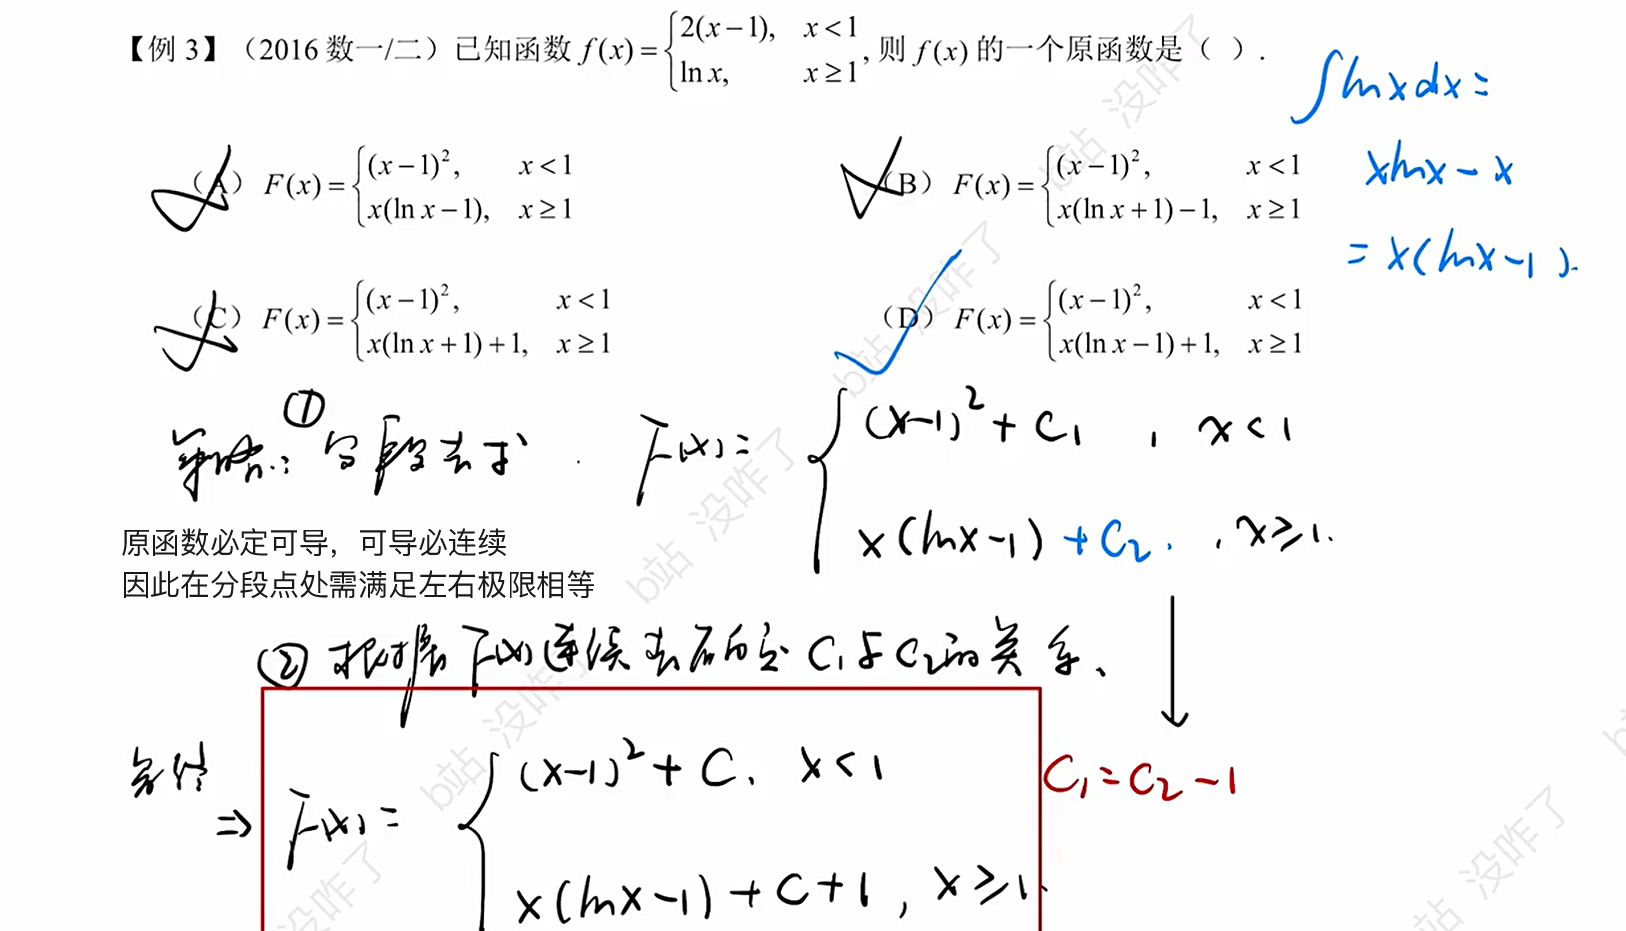 【例 3】（2016 数一/二）已知函数 f(x) = { 2(x−1), x<1
ln x, x≥1 , 则 f(x) 的一个原函数是（ ）.
∫lnxdx=
xlnx-x
=x(lnx-1).
（A）F(x) = { (x−1)², x<1
x(ln x−1), x≥1
（B）F(x) = { (x−1)², x<1
x(ln x+1)−1, x≥1
（C）F(x) = { (x−1)², x<1
x(ln x+1)+1, x≥1
（D）F(x) = { (x−1)², x<1
x(ln x−1)+1, x≥1
策略: ①分段去求.
F(x)= { (x-1)²+C₁, x<1
x(lnx-1)+C₂, x≥1.
原函数必定可导，可导必连续
因此在分段点处需满足左右极限相等
②根据F(x)连续去确定C₁与C₂的关系、
C₁=C₂-1
⇒ F(x)= { (x-1)²+C, x<1
x(lnx-1)+C+1, x≥1.
b站 没咋了